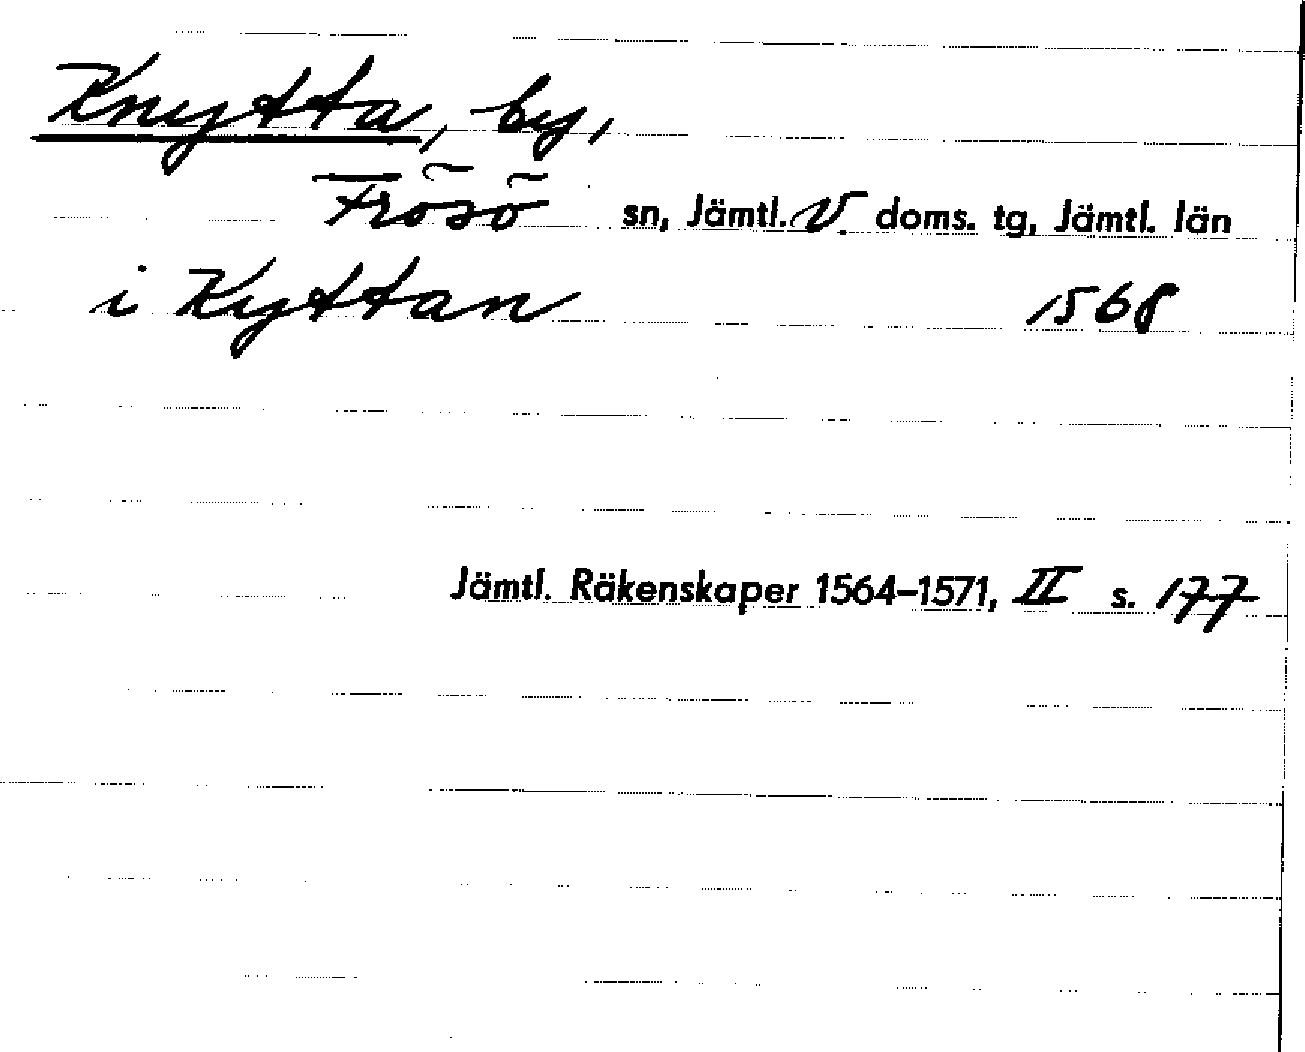 Knytta, by,
Frösö sn, Jämtl. V. doms. tg, Jämtl. län
i Kyttan 1568
Jämtl. Räkenskaper 1564–1571, II s. 177